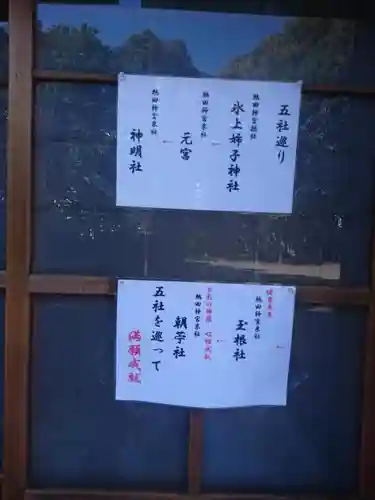 五社巡り
熱田神宮摂社
氷上姉子神社
←
熱田神宮末社
元宮
←
熱田神宮末社
神明社
←
熱田神宮末社
玉根社
←
心願成就
熱田神宮末社
朝苧社
五社を巡って
満願成就